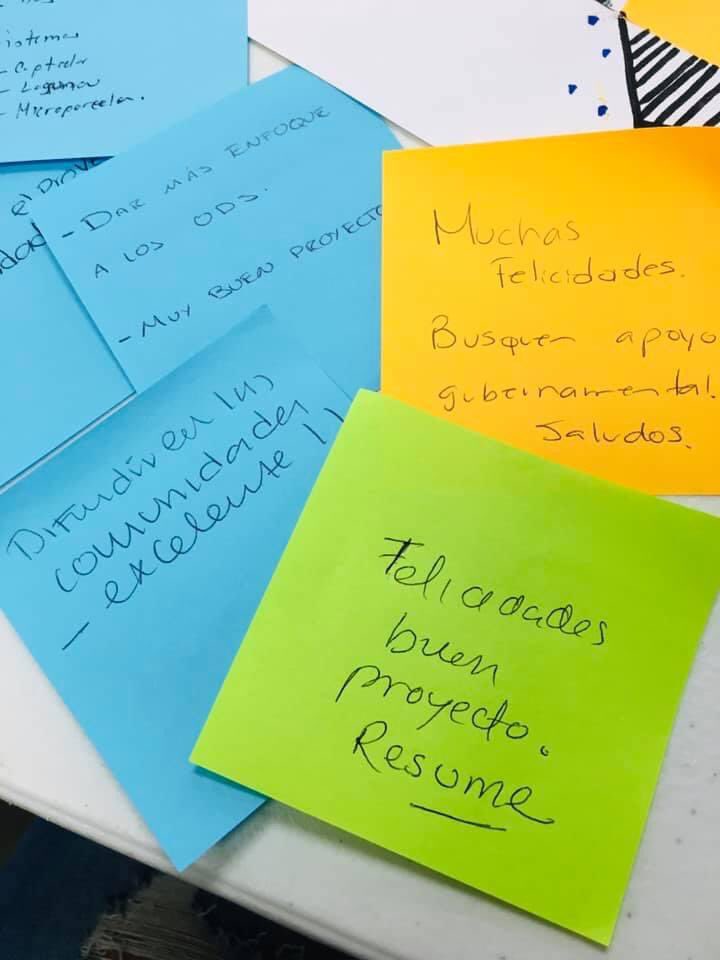 - Captador
- Lagunas
- Microparcelas.
- DAR MÁS ENFOQUE
A LOS ODS.
- MUY BUEN PROYECTO
Muchas
Felicidades.
Busquen apoyo
gubernamental.
Saludos.
Difundir en las
comunidades
- excelente !!
Felicidades
buen
proyecto.
Resume